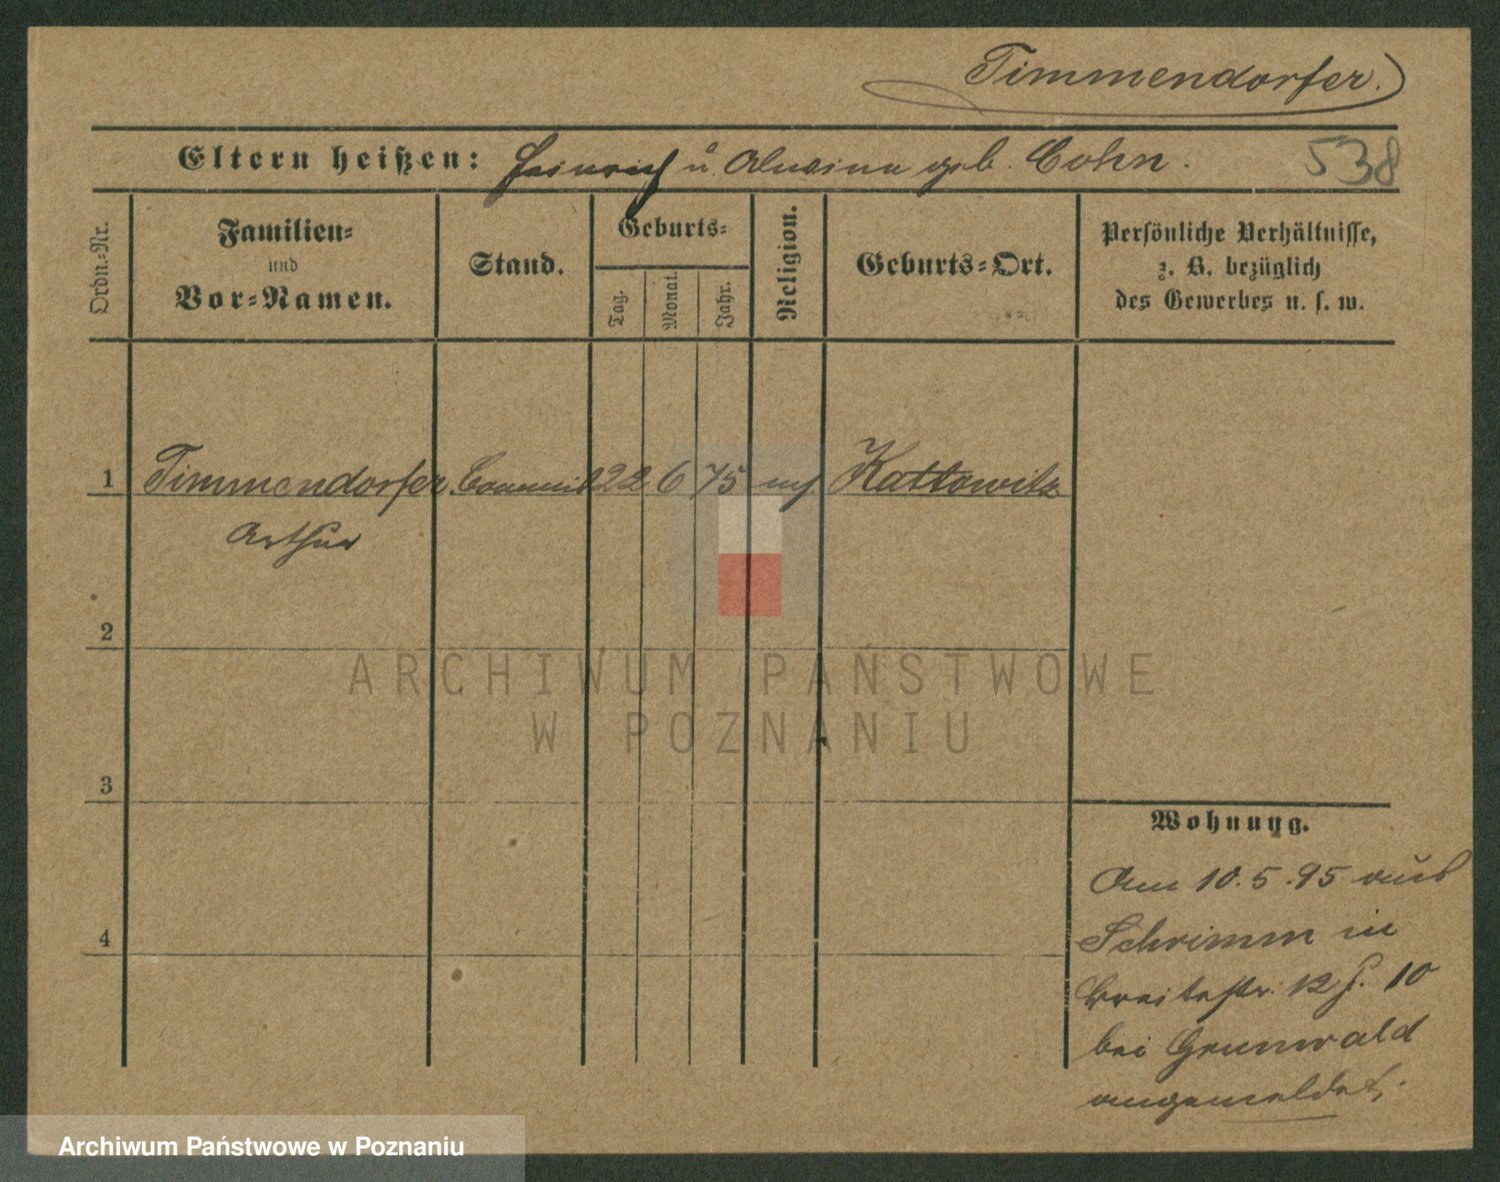 Timmendorfer.
Eltern heißen: Heinrich u. Alwine geb. Cohn. 538
Ordn.-Nr.
Familien-
und
Vor-Namen.
Stand.
Geburts-
Tag.
Monat.
Jahr.
Religion.
Geburts-Ort.
Persönliche Verhältnisse,
z. B. bezüglich
des Gewerbes u. s. w.
1 Timmendorfer Commis 22 6 75 Kattowitz
Arthur
2
3
4
Wohnung.
Am 10.5.95 aus
Schrimm in
Breitestr. 12 10
bei Grunwald
angemeldet.
ARCHIWUM PAŃSTWOWE
W POZNANIU
Archiwum Państwowe w Poznaniu